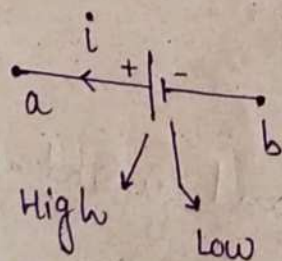 i
+ -
a
b
High
Low